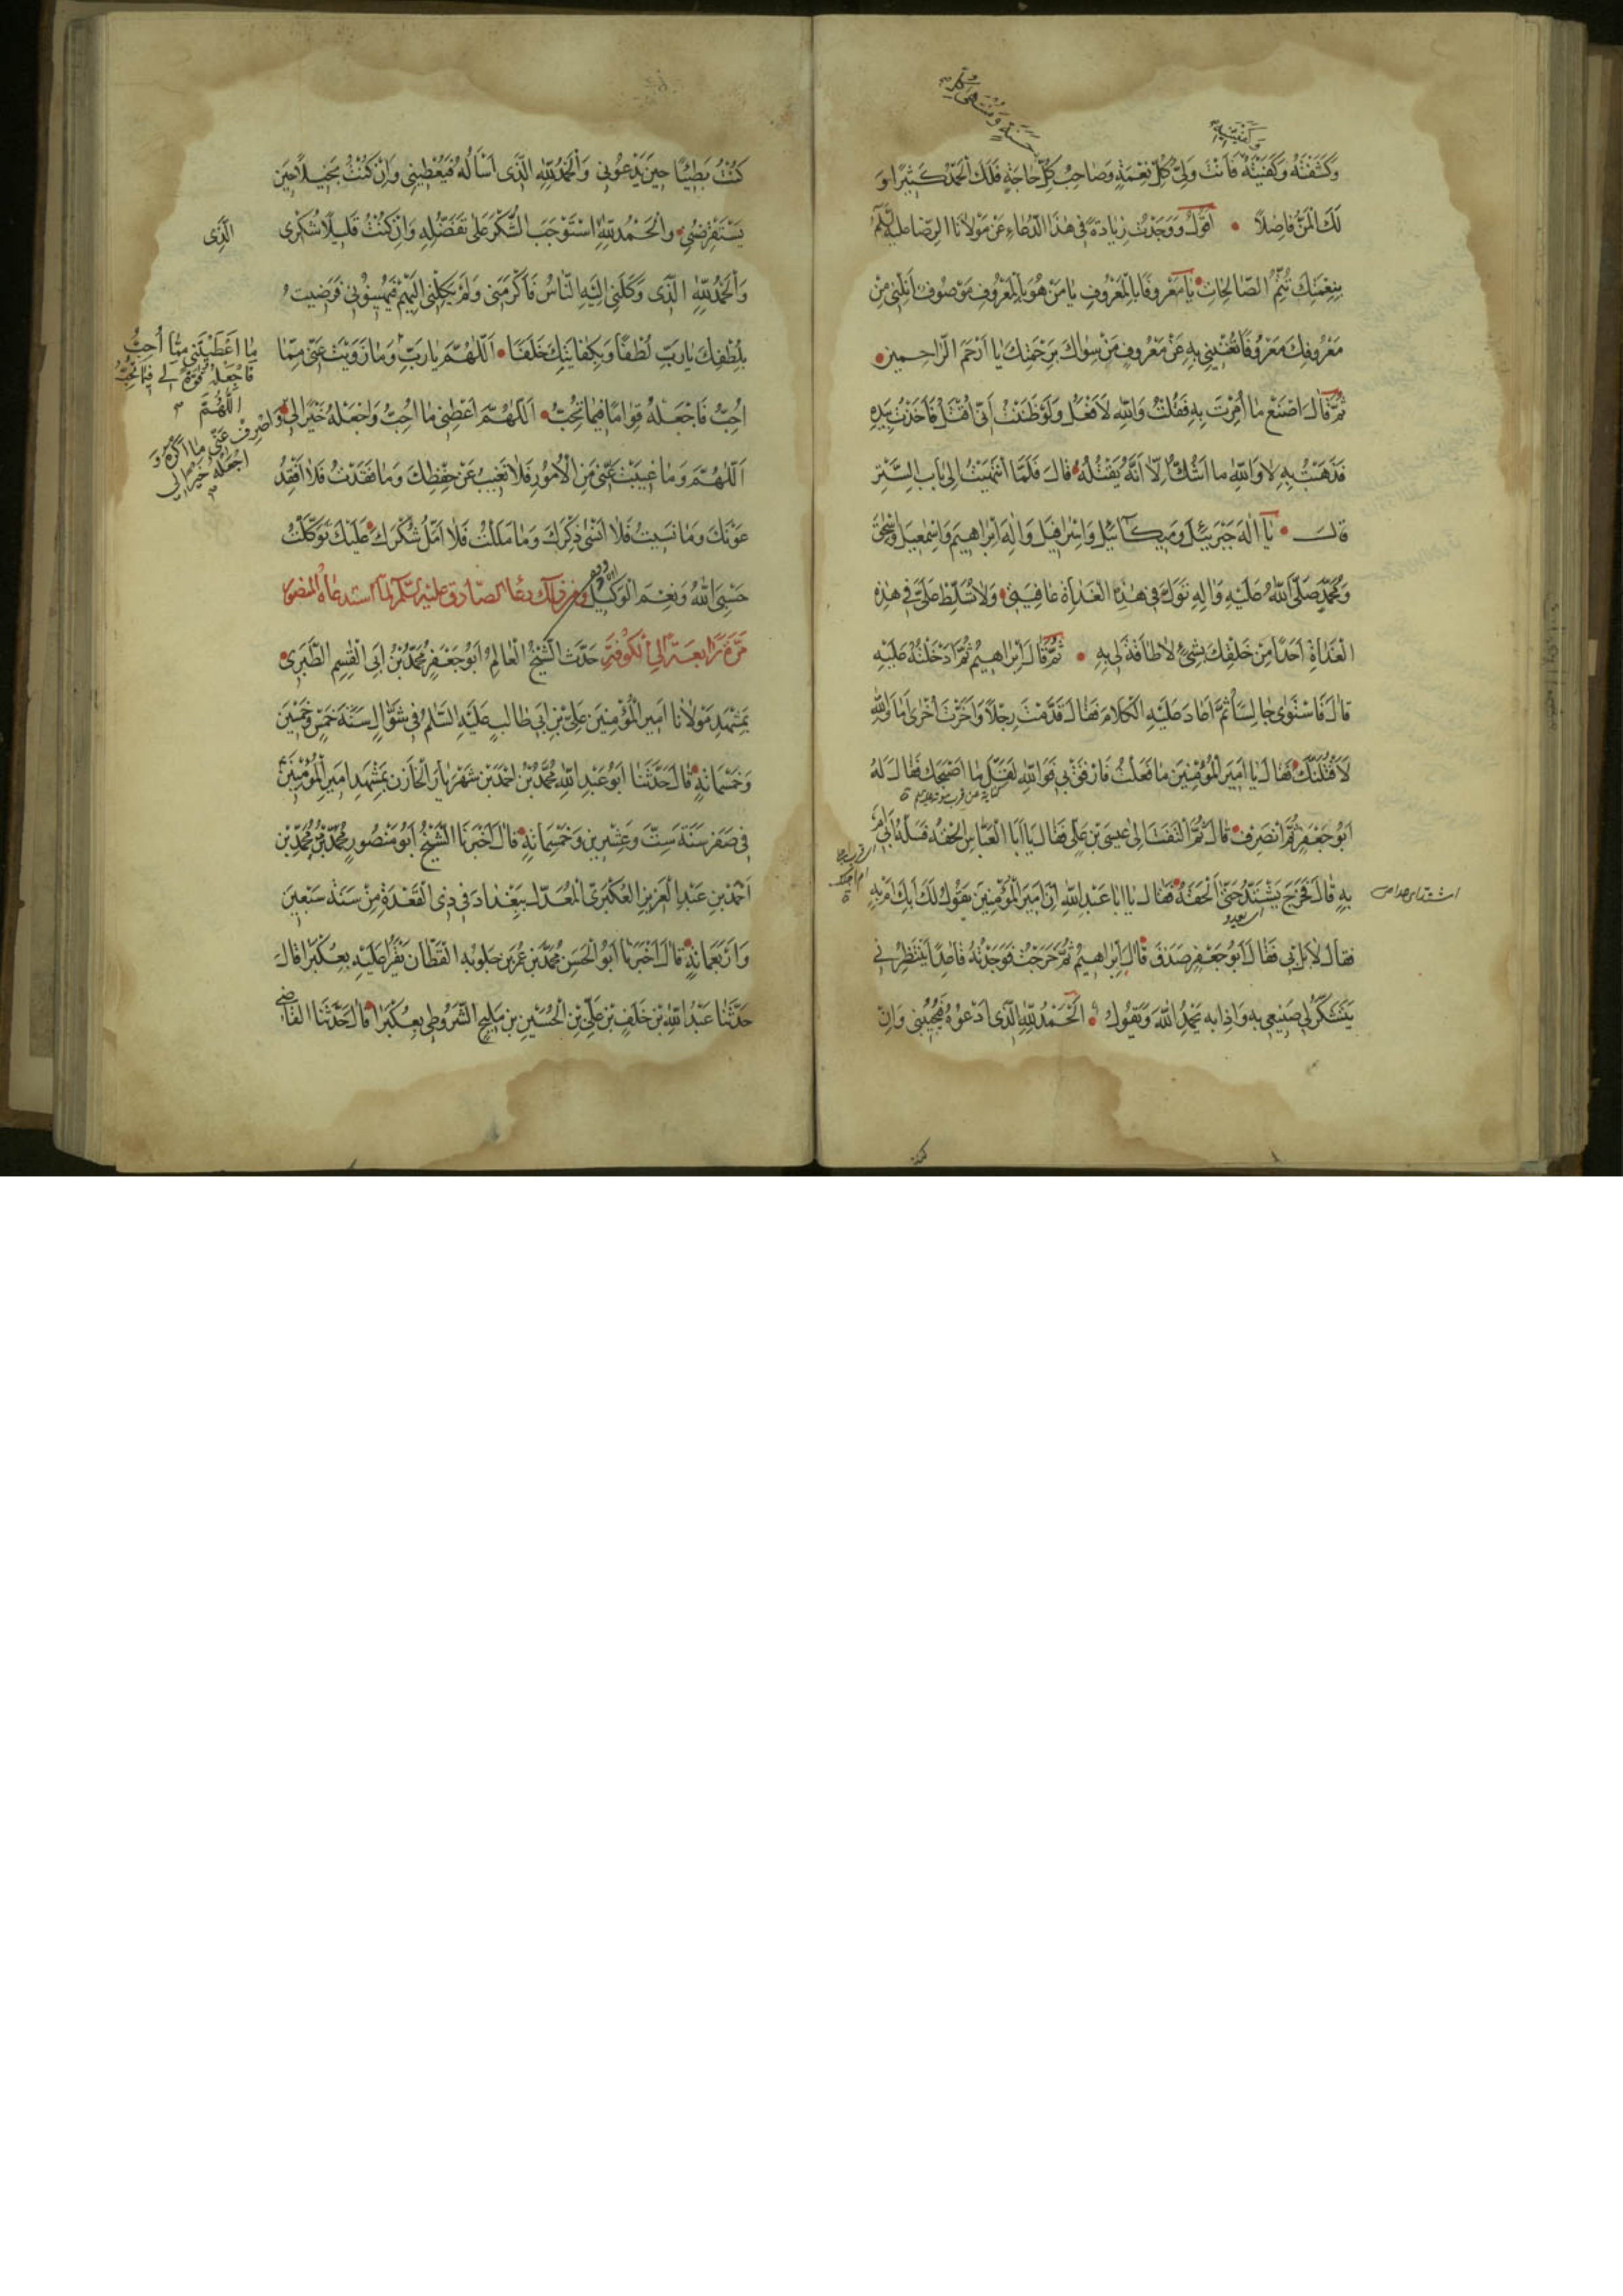 وَكَشَفْتَهُ وَكَفَيْتَهُ فَاَنْتَ وَلِىُّ كُلِّ نِعْمَةٍ وَصَاحِبُ كُلِّ حَاجَةٍ فَلَكَ الْحَمْدُ كَثيرًا وَ
لَكَ الْمَنُّ فَاضِلًا • اَقُولُ وَوَجَدْتُ زِيَادَةً فى هٰذَا الدُّعَاءِ عَنْ مَوْلَانَا الرِّضَا عليه السّلم
بِنِعْمَتِكَ تَتِمُّ الصَّالِحَاتُ • يَا مَعْرُوفًا بِالْمَعْرُوفِ يَا مَنْ هُوَ بِالْمَعْرُوفِ مَوْصُوفٌ اَنِلْنى مِنْ
مَعْرُوفِكَ مَعْرُوفًا تُغْنينى بِهِ عَنْ مَعْرُوفِ مَنْ سِوَاكَ بِرَحْمَتِكَ يَا اَرْحَمَ الرَّاحِمينَ •
ثُمَّ قَالَ اصْنَعْ مَا اُمِرْتَ بِهِ فَقُلْتُ وَاللّٰهِ لَا اَفْعَلُ وَلَوْ ظَنَنْتُ اَنّى اُقْتَلُ فَاَخَذْتُ بِيَدِهِ
فَذَهَبْتُ بِهِ لَا وَاللّٰهِ مَا اَشُكُّ اِلَّا اَنَّهُ يَقْتُلُهُ • قَالَ فَلَمَّا انْتَهَيْتُ اِلى بَابِ السِّتْرِ
قَالَ • يَا اِلٰهَ جَبْرَئيلَ وَميكَآئيلَ وَاِسْرَافيلَ وَاِلٰهَ اِبْرَاهيمَ وَاِسْمٰعيلَ وَاِسْحٰقَ
وَمُحَمَّدٍ صَلَّى اللّٰهُ عَلَيْهِ وَالِهِ تَوَلَّ فى هٰذِهِ الْغَدَاةِ عَافِيَتى • وَلَا تُسَلِّطْ عَلَىَّ فى هٰذِهِ
الْغَدَاةِ اَحَدًا مِنْ خَلْقِكَ بِشَىْءٍ لَا طَاقَةَ لى بِهِ • ثُمَّ قَالَ اِبْرَاهيمُ ثُمَّ اَدْخَلْتُهُ عَلَيْهِ
قَالَ فَاسْتَوٰى جَالِسًا ثُمَّ اَعَادَ عَلَيْهِ الْكَلَامَ فَقَالَ قَدَّمْتَ رِجْلًا وَاَخَّرْتَ اُخْرٰى اَمَا وَاللّٰهِ
لَاَقْتُلَنَّكَ • فَقَالَ يَا اَميرَ الْمُؤْمِنينَ مَا فَعَلْتُ فَارْفُقْ بى فَوَاللّٰهِ لَقَلَّ مَا اَصْحَبُكَ فَقَالَ لَهُ
اَبُو جَعْفَرٍ قُمْ انْصَرِفْ • قَالَ ثُمَّ الْتَفَتَ اِلٰى عيسَى بْنِ عَلِىٍّ فَقَالَ يَا اَبَا الْعَبَّاسِ الْحَقْهُ فَسَلْهُ اَبى اَمْ
بِهِ قَالَ فَخَرَجَ يَشْتَدُّ حَتّٰى لَحِقَهُ • فَقَالَ يَا اَبَا عَبْدِ اللّٰهِ اِنَّ اَميرَ الْمُؤْمِنينَ يَقُولُ لَكَ اَبِكَ اَمْ بِهِ
فَقَالَ لَا بَلْ بى فَقَالَ اَبُو جَعْفَرٍ صَدَقَ • قَالَ اِبْرَاهيمُ ثُمَّ خَرَجْتُ فَوَجَدْتُهُ قَاعِدًا يَنْتَظِرُنى
يَتَشَكَّرُ لى صَنيعى بِهِ وَاِذَا بِهِ يَحْمَدُ اللّٰهَ وَيَقُولُ • اَلْحَمْدُ لِلّٰهِ الَّذى اَدْعُوهُ فَيُجيبُنى وَاِنْ
كُنْتُ بَطيئًا حينَ يَدْعُونى وَالْحَمْدُ لِلّٰهِ الَّذى اَسْاَلُهُ فَيُعْطينى وَاِنْ كُنْتُ بَخيلًا حينَ
يَسْتَقْرِضُنى • وَالْحَمْدُ لِلّٰهِ اسْتَوْجَبَ الشُّكْرَ عَلٰى تَفَضُّلِهِ وَاِنْ كُنْتُ قَليلًا شُكْرى
الَّذى
وَالْحَمْدُ لِلّٰهِ الَّذى وَكَّلَنى اِلَيْهِ النَّاسُ فَاَكْرَمَنى وَلَمْ يَكِلْنى اِلَيْهِمْ فَيُهينُونى فَرَضيتُ
بِلُطْفِكَ يَا رَبِّ لُطْفًا وَبِكِفَايَتِكَ خَلَفًا • اَللّٰهُمَّ يَا رَبِّ وَمَا زَوَيْتَ عَنّى مِمَّا
مَا اَعْطَيْتَنى مِمَّا اُحِبُّ
فَاجْعَلْهُ قُوَّةً لى فيمَا تُحِبُّ
اَللّٰهُمَّ
اُحِبُّ فَاجْعَلْهُ قِوَامًا فيمَا تُحِبُّ • اَللّٰهُمَّ اَعْطِنى مَا اُحِبُّ وَاجْعَلْهُ خَيْرًا لى
وَاصْرِفْ عَنّى مَا اَكْرَهُ وَ
اجْعَلْهُ خَيْرًا لى
اَللّٰهُمَّ وَمَا غَيَّبْتَ عَنّى مِنَ الْاُمُورِ فَلَا تُغَيِّبْ عَنّى حِفْظَكَ وَمَا فَقَدْتُ فَلَا اَفْقِدُ
عَوْنَكَ وَمَا نَسيتُ فَلَا اَنْسٰى ذِكْرَكَ وَمَا مَلَلْتُ فَلَا اَمَلُّ شُكْرَكَ • عَلَيْكَ تَوَكَّلْتُ
حَسْبِىَ اللّٰهُ وَنِعْمَ الْوَكيلُ وَمِنْ ذٰلِكَ دُعَاءُ الصَّادِقِ عَلَيْهِ السَّلَمُ لَمَّا اسْتَدْعَاهُ الْمَنْصُورُ
مَرَّةً رَابِعَةً اِلَى الْكُوفَةِ حَدَّثَ الشَّيْخُ الْعَالِمُ اَبُو جَعْفَرٍ مُحَمَّدُ بْنُ اَبِى الْقٰسِمِ الطَّبَرِىُّ •
بِمَشْهَدِ مَوْلَانَا اَميرِ الْمُؤْمِنينَ عَلِىِّ بْنِ اَبى طَالِبٍ عَلَيْهِ السَّلَمُ فى شَوَّالٍ سَنَةَ خَمْسٍ وَخَمْسينَ
وَخَمْسِمِائَةٍ • قَالَ حَدَّثَنَا اَبُو عَبْدِ اللّٰهِ مُحَمَّدُ بْنُ اَحْمَدَ بْنِ شَهْرَيَارَ الْخَازِنُ بِمَشْهَدِ اَميرِ الْمُؤْمِنينَ
فى صَفَرٍ سَنَةَ سِتٍّ وَعِشْرينَ وَخَمْسِمِائَةٍ • قَالَ اَخْبَرَنَا الشَّيْخُ اَبُو مَنْصُورٍ مُحَمَّدُ بْنُ مُحَمَّدِ بْنِ
اَحْمَدَ بْنِ عَبْدِ الْعَزيزِ الْعُكْبَرِىُّ الْمُعَدَّلُ بِبَغْدَادَ فى ذِى الْقَعْدَةِ مِنْ سَنَةِ سَبْعينَ
وَاَرْبَعِمِائَةٍ • قَالَ اَخْبَرَنَا اَبُو الْحَسَنِ مُحَمَّدُ بْنُ عُمَرَ بْنِ حَلُويَه الْقَطَّانُ بِقِرَاءَةٍ عَلَيْهِ بِعُكْبَرَا قَالَ
حَدَّثَنَا عَبْدُ اللّٰهِ بْنُ خَلَفِ بْنِ عَلِىِّ بْنِ الْحُسَيْنِ بْنِ مَليحٍ الشُّرُوطِىُّ بِعُكْبَرَا • قَالَ حَدَّثَنَا الْقَاضى